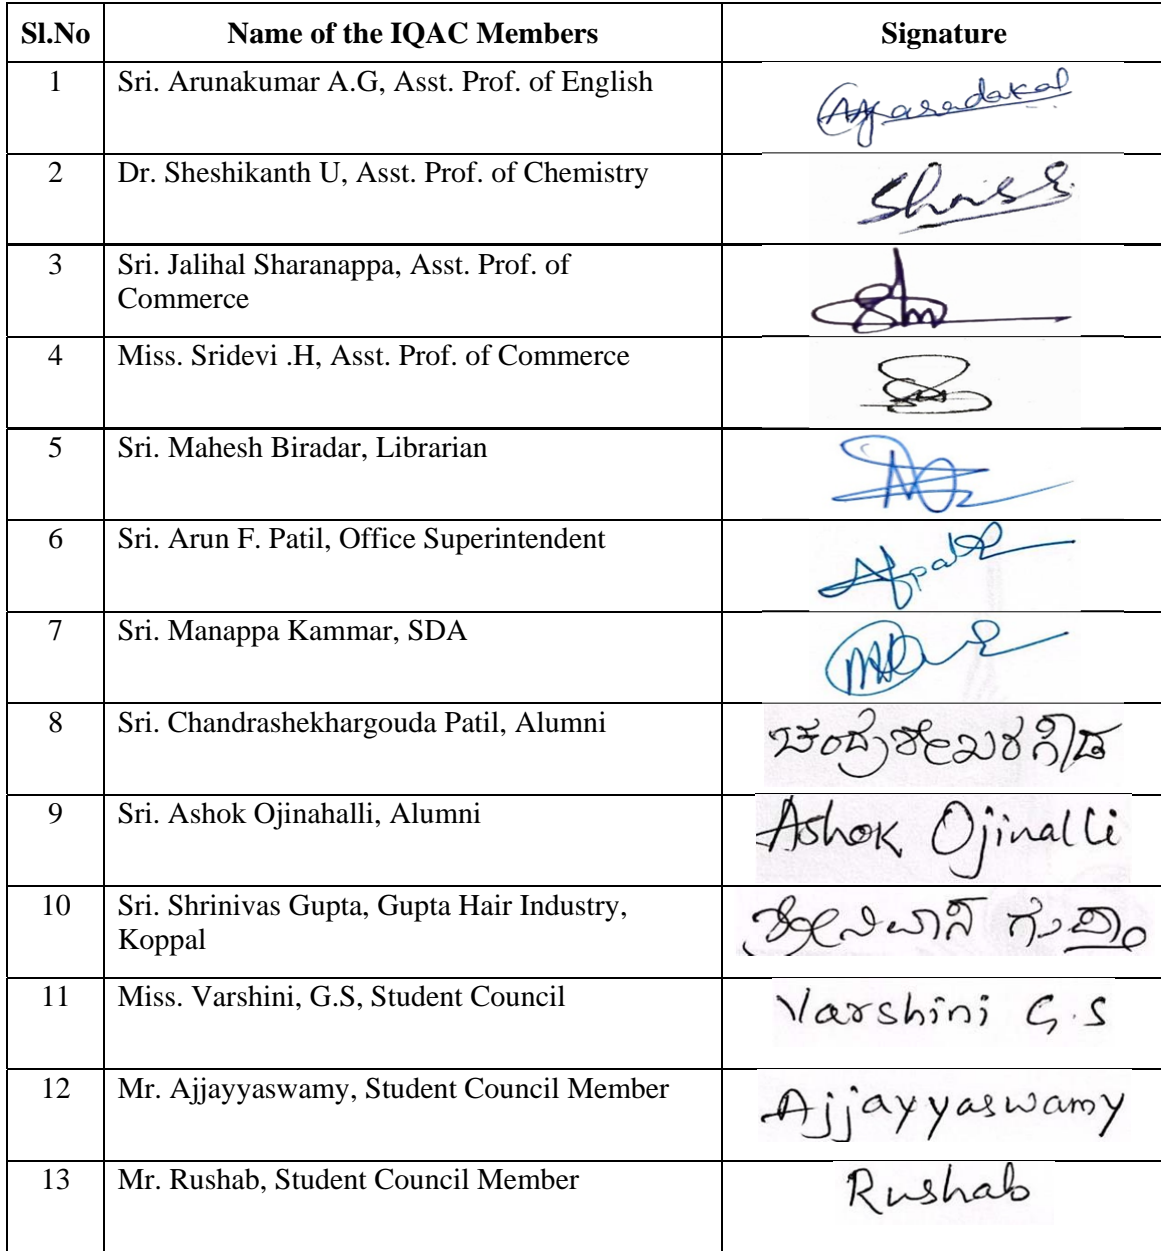 Sl.No Name of the IQAC Members Signature
1 Sri. Arunakumar A.G, Asst. Prof. of English
2 Dr. Sheshikanth U, Asst. Prof. of Chemistry
3 Sri. Jalihal Sharanappa, Asst. Prof. of
Commerce
4 Miss. Sridevi .H, Asst. Prof. of Commerce
5 Sri. Mahesh Biradar, Librarian
6 Sri. Arun F. Patil, Office Superintendent
7 Sri. Manappa Kammar, SDA
8 Sri. Chandrashekhargouda Patil, Alumni ಚಂದ್ರಶೇಖರಗೌಡ
9 Sri. Ashok Ojinahalli, Alumni Ashok Ojinalli
10 Sri. Shrinivas Gupta, Gupta Hair Industry, ಶ್ರೀನಿವಾಸ ಗುಪ್ತಾ
Koppal
11 Miss. Varshini, G.S, Student Council Varshini G.S
12 Mr. Ajjayyaswamy, Student Council Member Ajjayyaswamy
13 Mr. Rushab, Student Council Member Rushab